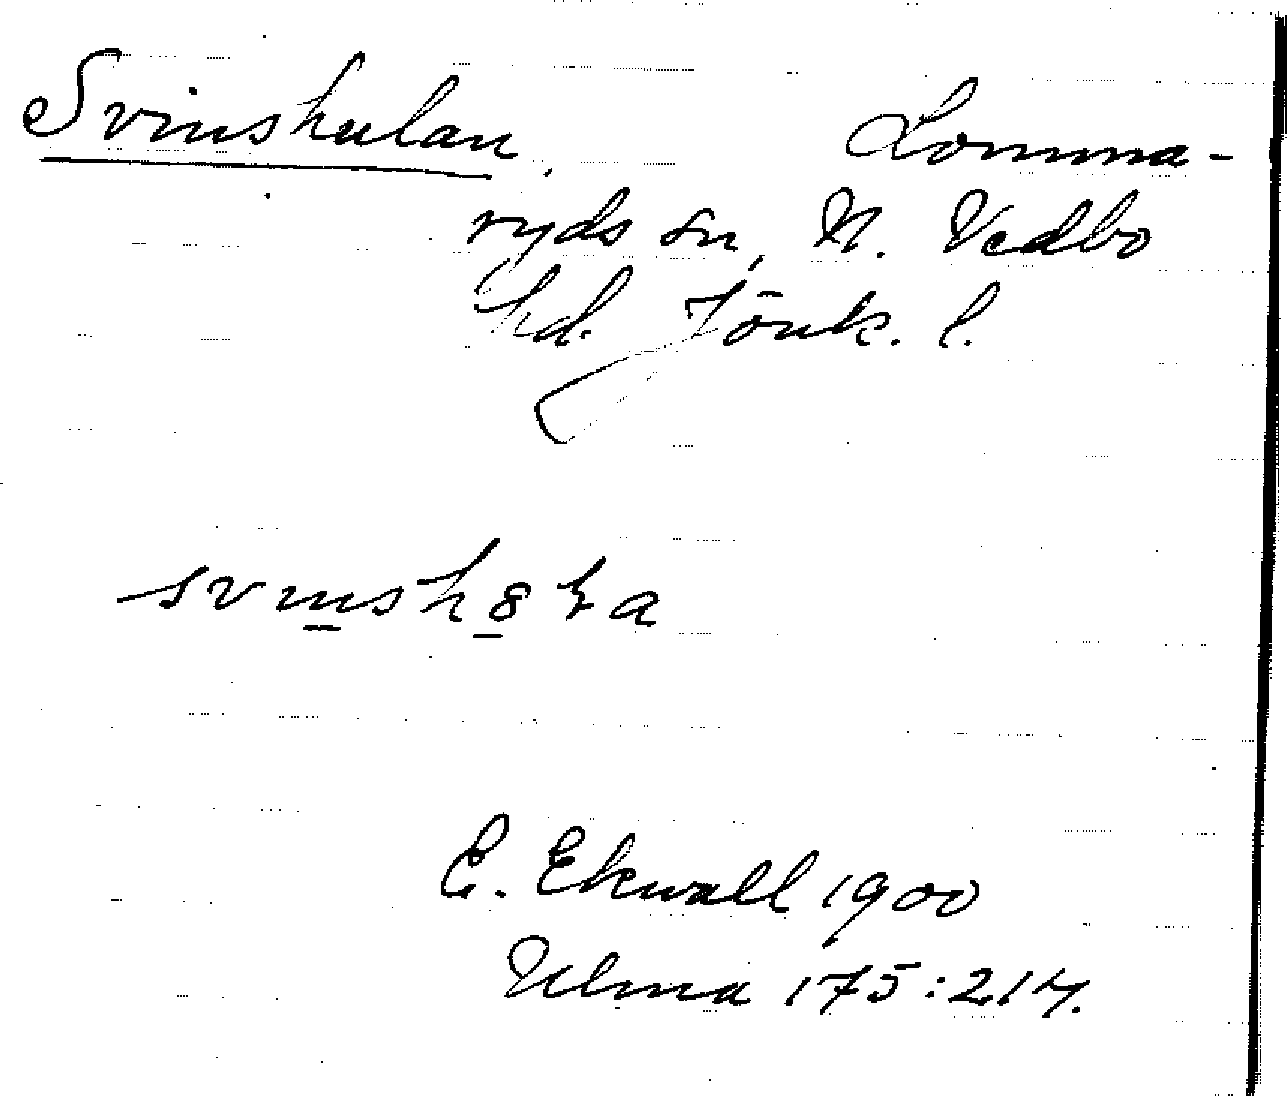 Svinshulan. Lomma-
ryds sn, N. Vedbo
hd. Jönk. l.
E. Ekwall 1900
Ulma 175:217.